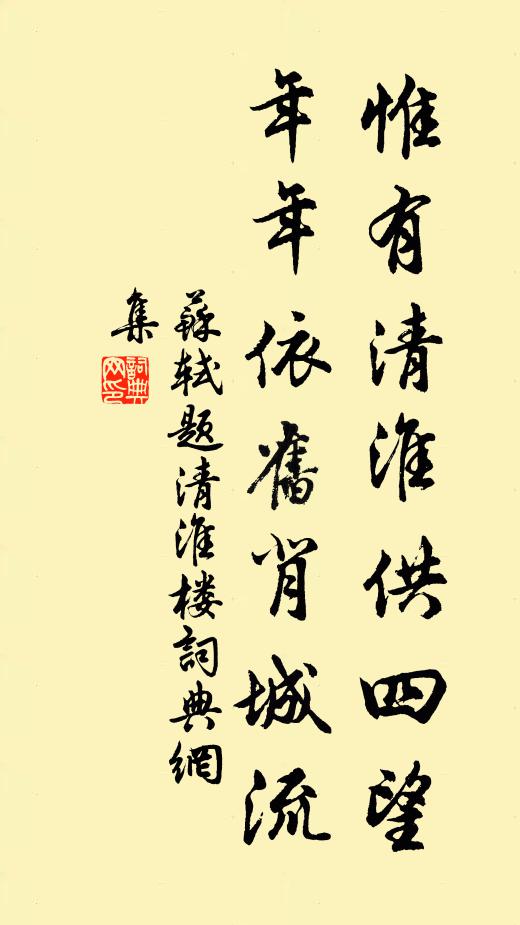 惟有清淮供四望
年年依舊背城流
蘇軾题清淮楼詞典網
集
詞典
网印